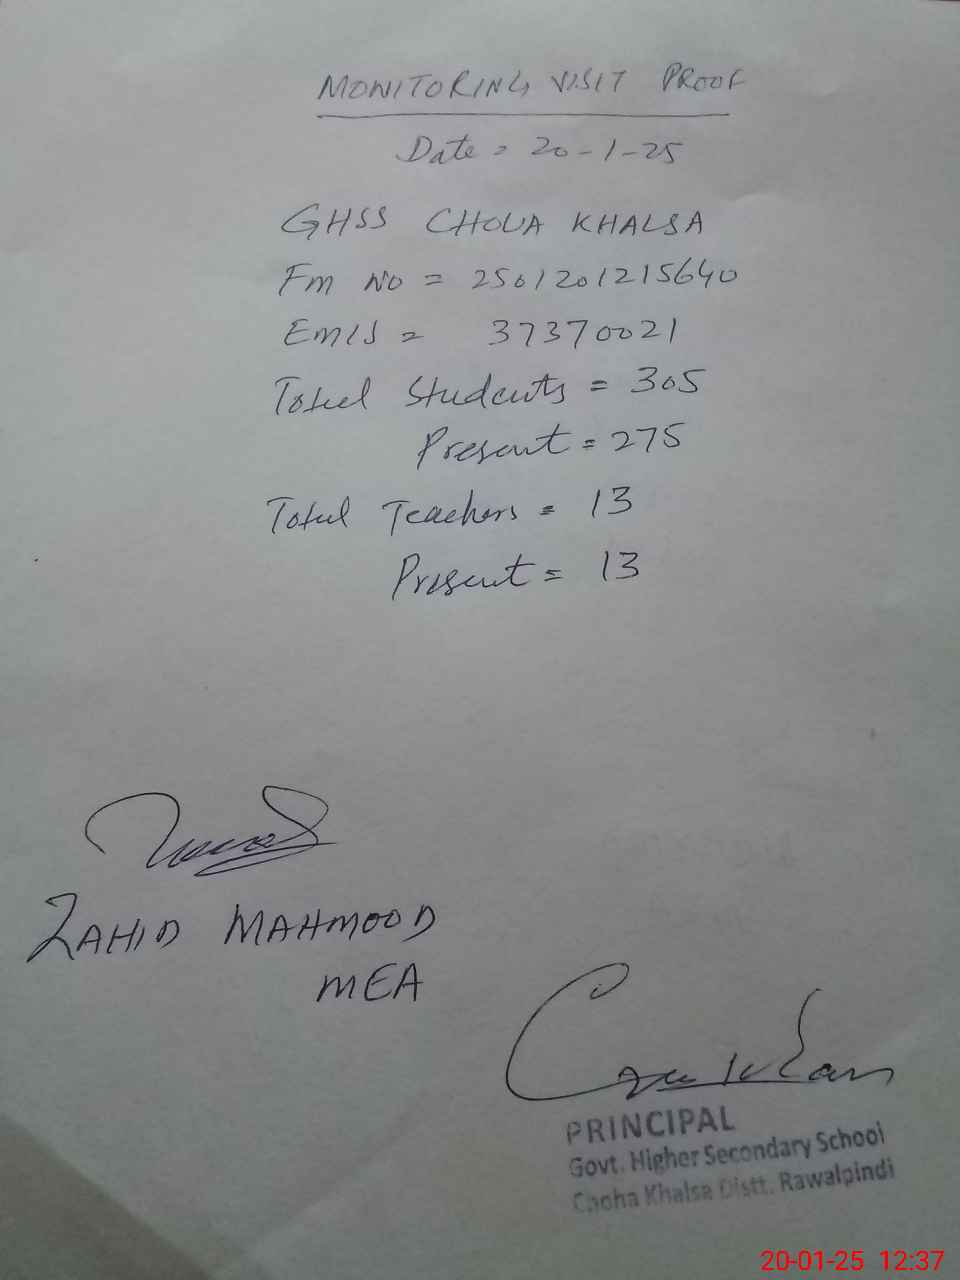 MONITORING VISIT PROOF
Date = 20-1-25
GHSS CHOUA KHALSA
Fm No = 2501201215640
EMIS = 37370021
Total Students = 305
Present = 275
Total Teachers = 13
Present = 13
ZAHID MAHMOOD
MEA
PRINCIPAL
Govt. Higher Secondary School
Choha Khalsa Distt. Rawalpindi
20-01-25 12:37